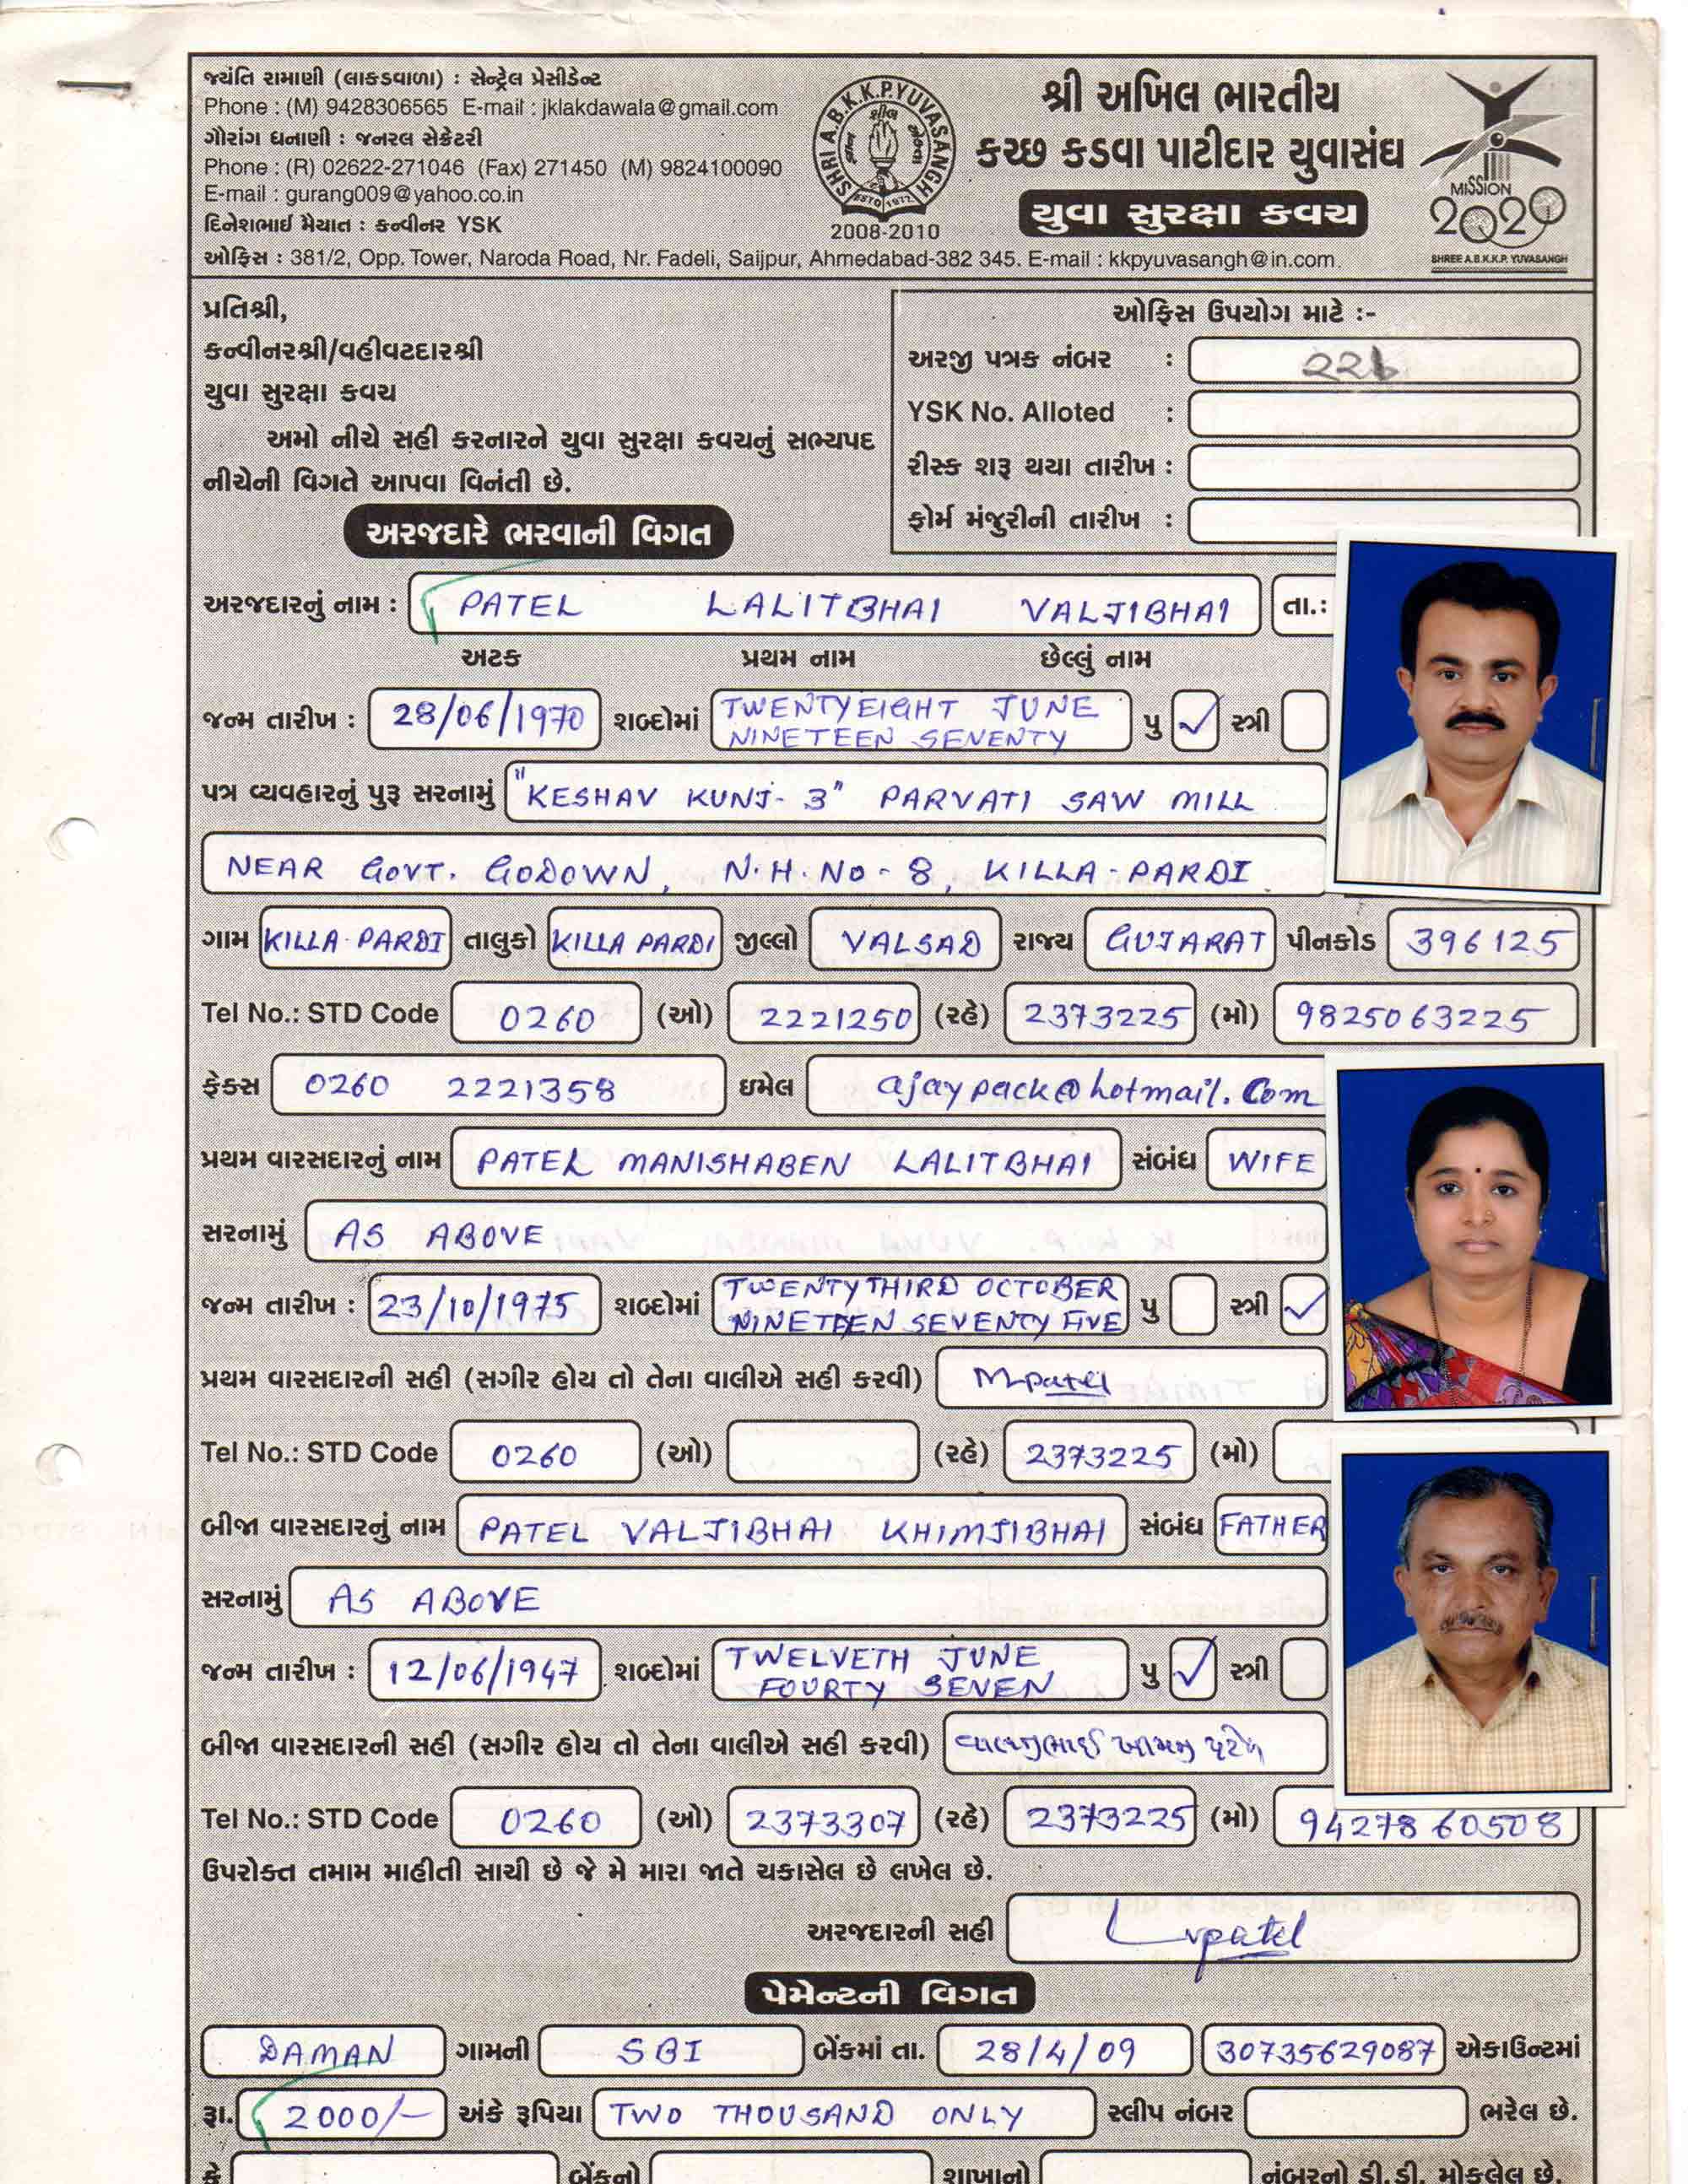 જયંતિ રામાણી (લાકડાવાળા) : સેન્ટ્રેલ પ્રેસીડેન્ટ
Phone : (M) 9428306565 E-mail : jklakdawala@gmail.com
ગૌરાંગ ધનાણી : જનરલ સેક્રેટરી
Phone : (R) 02622-271046 (Fax) 271450 (M) 9824100090
E-mail : gurang009@yahoo.co.in
દિનેશભાઈ મૈયાત : કન્વીનર YSK
SHRI A.B.K.K.P.YUVASANGH
ESTD 1977
2008-2010
શ્રી અખિલ ભારતીય
કચ્છ કડવા પાટીદાર યુવાસંઘ
યુવા સુરક્ષા કવચ
MISSION
2020
SHREE A.B.K.K.P. YUVASANGH
ઓફિસ : 381/2, Opp. Tower, Naroda Road, Nr. Fadeli, Saijpur, Ahmedabad-382 345. E-mail : kkpyuvasangh@in.com.
પ્રતિશ્રી,
કન્વીનરશ્રી/વહીવટદારશ્રી
યુવા સુરક્ષા કવચ
અમો નીચે સહી કરનારને યુવા સુરક્ષા કવચનું સભ્યપદ
નીચેની વિગતે આપવા વિનંતી છે.
ઓફિસ ઉપયોગ માટે :-
અરજી પત્રક નંબર :
YSK No. Alloted :
રીસ્ક શરૂ થયા તારીખ :
ફોર્મ મંજુરીની તારીખ :
અરજદારે ભરવાની વિગત
અરજદારનું નામ : PATEL LALITBHAI VALJIBHAI તા.:
અટક પ્રથમ નામ છેલ્લું નામ
જન્મ તારીખ : 28/06/1970 શબ્દોમાં TWENTYEIGHT JUNE NINETEEN SEVENTY પુ ✓ સ્ત્રી
પત્ર વ્યવહારનું પુરૂ સરનામું "KESHAV KUNJ-3" PARVATI SAW MILL
NEAR GOVT. GODOWN, N.H.NO-8, KILLA-PARDI.
ગામ KILLA-PARDI તાલુકો KILLA PARDI જીલ્લો VALSAD રાજ્ય GUJARAT પીનકોડ 396125
Tel No.: STD Code 0260 (ઓ) 2221250 (રહે) 2373225 (મો) 9825063225
ફેક્સ 0260 2221358 ઇમેલ ajaypack@hotmail.com
પ્રથમ વારસદારનું નામ PATEL MANISHABEN LALITBHAI સંબંધ WIFE
સરનામું AS ABOVE
જન્મ તારીખ : 23/10/1975 શબ્દોમાં TWENTYTHIRD OCTOBER NINETEEN SEVENTY FIVE પુ સ્ત્રી ✓
પ્રથમ વારસદારની સહી (સગીર હોય તો તેના વાલીએ સહી કરવી) Mpatel
Tel No.: STD Code 0260 (ઓ) (રહે) 2373225 (મો)
બીજા વારસદારનું નામ PATEL VALJIBHAI KHIMJIBHAI સંબંધ FATHER
સરનામું AS ABOVE
જન્મ તારીખ : 12/06/1947 શબ્દોમાં TWELVETH JUNE FOURTY SEVEN પુ ✓ સ્ત્રી
બીજા વારસદારની સહી (સગીર હોય તો તેના વાલીએ સહી કરવી)
Tel No.: STD Code 0260 (ઓ) 2373307 (રહે) 2373225 (મો) 9427860508
ઉપરોક્ત તમામ માહીતી સાચી છે જે મે મારા જાતે ચકાસેલ છે લખેલ છે.
અરજદારની સહી Lvpatel
પેમેન્ટની વિગત
DAMAN ગામની SBI બેંકમાં તા. 28/4/09 30735629087 એકાઉન્ટમાં
રૂા. 2000/- અંકે રૂપિયા TWO THOUSAND ONLY સ્લીપ નંબર ભરેલ છે.
કે બેંકનો શાખાનો નંબરનો ડી.ડી. મોકલેલ છે.